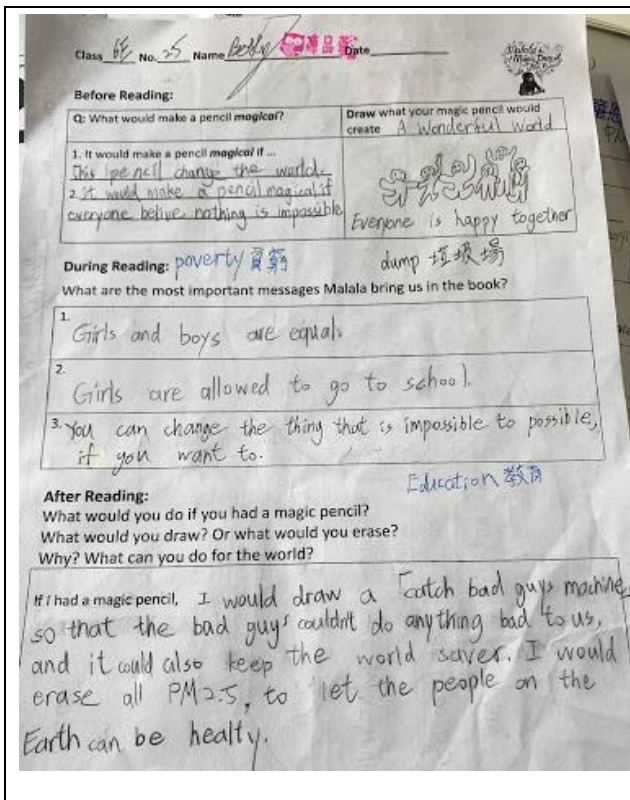 Class 6E No. 25 Name Betty Date
Malala's
Magic Pencil
Before Reading:
Q: What would make a pencil magical?
1. It would make a pencil magical if ...
This pencil change the world.
2. It would make a pencil magical if
everyone belive nothing is impossible
Draw what your magic pencil would
create A Wonderful World
Everyone is happy together
During Reading: poverty 貧窮 dump 垃圾場
What are the most important messages Malala bring us in the book?
1.
Girls and boys are equals
2.
Girls are allowed to go to school.
3. You can change the thing that is impossible to possible,
if you want to.
Education 教育
After Reading:
What would you do if you had a magic pencil?
What would you draw? Or what would you erase?
Why? What can you do for the world?
If I had a magic pencil, I would draw a 「catch bad guys machine」
so that the bad guys couldn't do anything bad to us,
and it could also keep the world saver. I would
erase all PM2.5, to let the people on the
Earth can be healty.